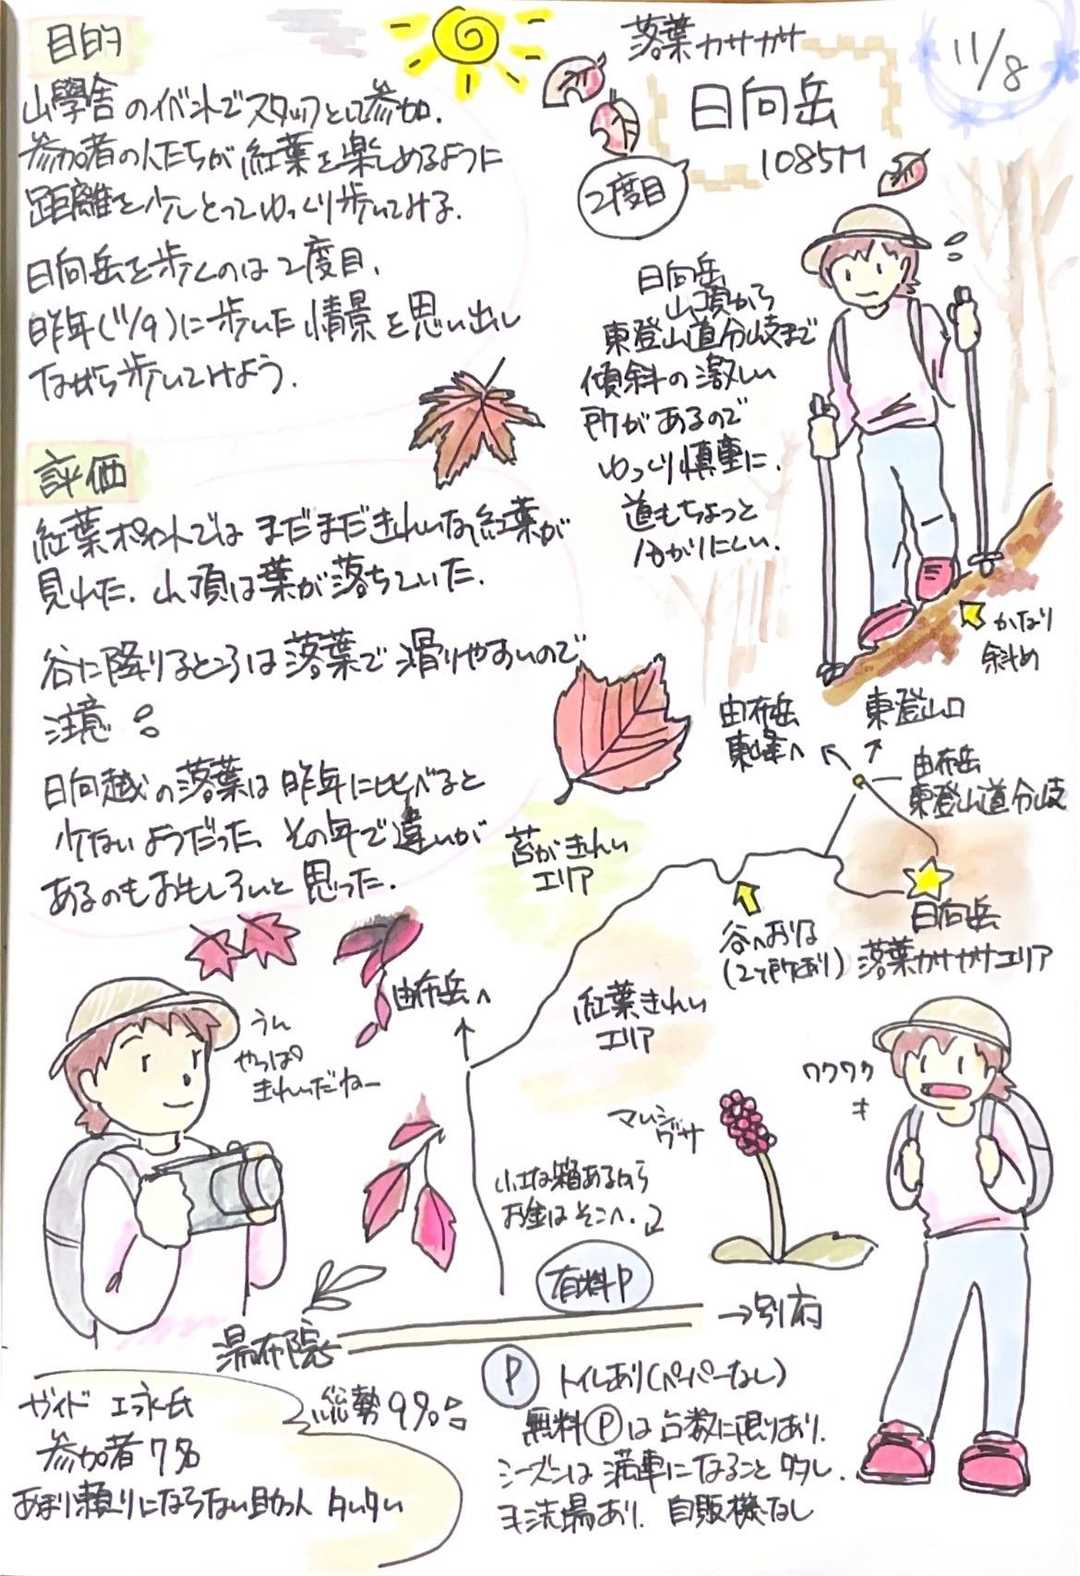 目的
山學舎のイベントでスタッフとして参加.
参加者の人たちが紅葉を楽しめるように
距離を少しとってゆっくり歩いてみる.
日向岳を歩くのは2度目.
昨年(11/9)に歩いた情景を思い出し
ながら歩いてみよう.
落葉カサガサ
日向岳
1085M
11/8
2度目
日向岳
山頂から
東登山道分岐まで
傾斜の激しい
所があるので
ゆっくり慎重に.
道もちょっと
分かりにくい.
かなり
斜め
評価
紅葉ポイントではまだまだきれいな紅葉が
見れた. 山頂は葉が落ちていた.
谷に降りるところは落葉で滑りやすいので
注意
日向越の落葉は昨年に比べると
少ないようだった. その年で違いが
あるのもおもしろいと思った.
由布岳
東峰へ
東登山口
由布岳
東登山道分岐
日向岳
落葉ガサガサエリア
谷へおりる
(2ヶ所あり)
苔がきれい
エリア
紅葉きれい
エリア
由布岳へ
うん
やっぱ
きれいだねー
ワクワク
マムシ
グサ
小さな箱あるから
お金はそこへ.
有料P
→別府
湯布院
ガイド 工永氏
参加者7名
あまり頼りにならない助っ人
総勢9名
P トイレあり(ペーパーなし)
無料Pは台数に限りあり.
シーズンは満車になること多し.
手洗場あり. 自販機なし